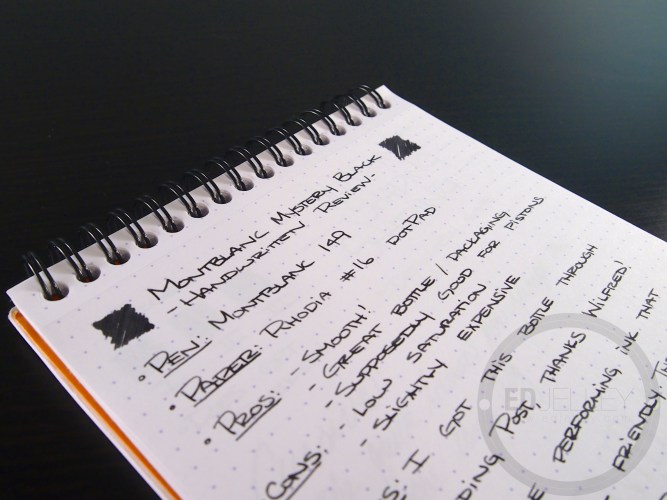 MONTBLANC MYSTERY BLACK
- HANDWRITTEN REVIEW -
• PEN: MONTBLANC 149
• PAPER: RHODIA #16 DOTPAD
• PROS: - SMOOTH!
- GREAT BOTTLE / PACKAGING
- SUPPOSEDLY GOOD FOR PISTONS
CONS: - LOW SATURATION
- SLIGHTLY EXPENSIVE
S: I GOT THIS BOTTLE THROUGH
DING POST, THANKS WILFRED!
E PERFORMING INK THAT
FRIENDLY. TH
ED JELLEY